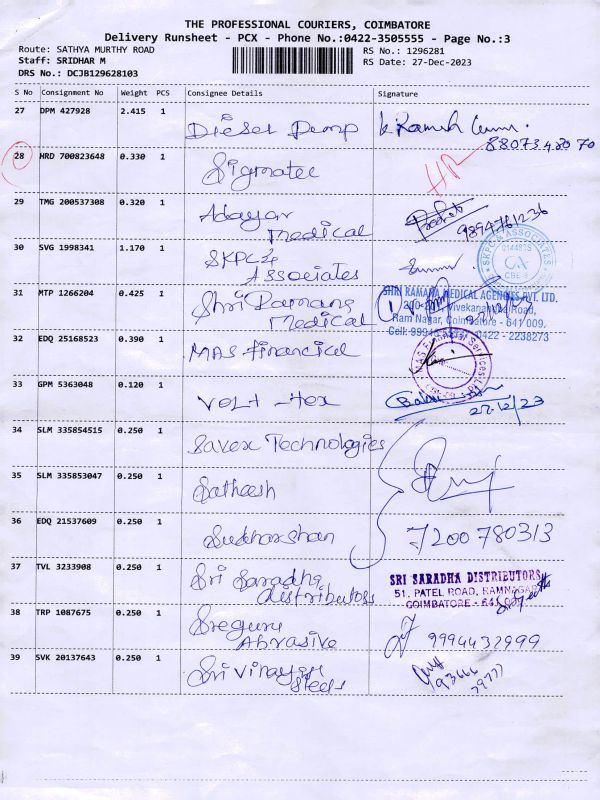 THE PROFESSIONAL COURIERS, COIMBATORE
Delivery Runsheet - PCX - Phone No.:0422-3505555 - Page No.:3
Route: SATHYA MURTHY ROAD RS No.: 1296281
Staff: SRIDHAR M RS Date: 27-Dec-2023
DRS No.: DCJB129628103
S No Consignment No Weight PCS Consignee Details Signature
27 DPM 427928 2.415 1 Diesel Pump
8807348070
28 HRD 700823648 0.330 1 Sigmatec
29 TMG 200537308 0.320 1 Adayar Medical
9894761236
30 SVG 1998341 1.170 1 SKPC4 Associates
SKPC & ASSOCIATES
CA
31 MTP 1266204 0.425 1 Shri Ramana Medical
SHRI RAMANA MEDICAL AGENCIES PVT. LTD.
Vivekananda Road,
Ram Nagar, Coimbatore - 641 009.
0422 - 2238273
32 EDQ 25168523 0.390 1 MAS Financial
33 GPM 5363048 0.120 1 Volt-tex
27/12/23
34 SLM 335854515 0.250 1 Savex Technologies
35 SLM 335853047 0.250 1 Satheesh
36 EDQ 21537609 0.250 1 Sudharshan 7200780313
37 TVL 3233908 0.250 1 Sri Saradha distributors
SRI SARADHA DISTRIBUTORS
51, PATEL ROAD, RAMNAGAR
COIMBATORE - 641 009
38 TRP 1087675 0.250 1 Sreguru Abrasive 9994432999
39 SVK 20137643 0.250 1 Sri Vinayaga Steels
93666
79777